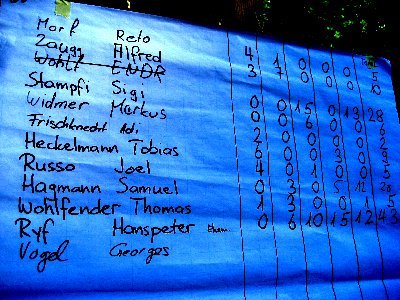 Morf Reto 4 1 0 0 0 5
Zaugg Alfred 3 7 0 0 0 10
Stampfi Sigi 0 0 15 0 13 28
Widmer Markus 0 0 6 0 0 6
Frischknecht Adi 2 0 0 0 0 2
Heckelmann Tobias 6 0 0 3 0 9
Russo Joel 4 0 1 0 0 5
Hagmann Samuel 0 3 0 5 12 20
Wohlfender Thomas 1 3 0 0 1 5
Ryf Hanspeter 0 6 10 15 12 43
Vogel Georges